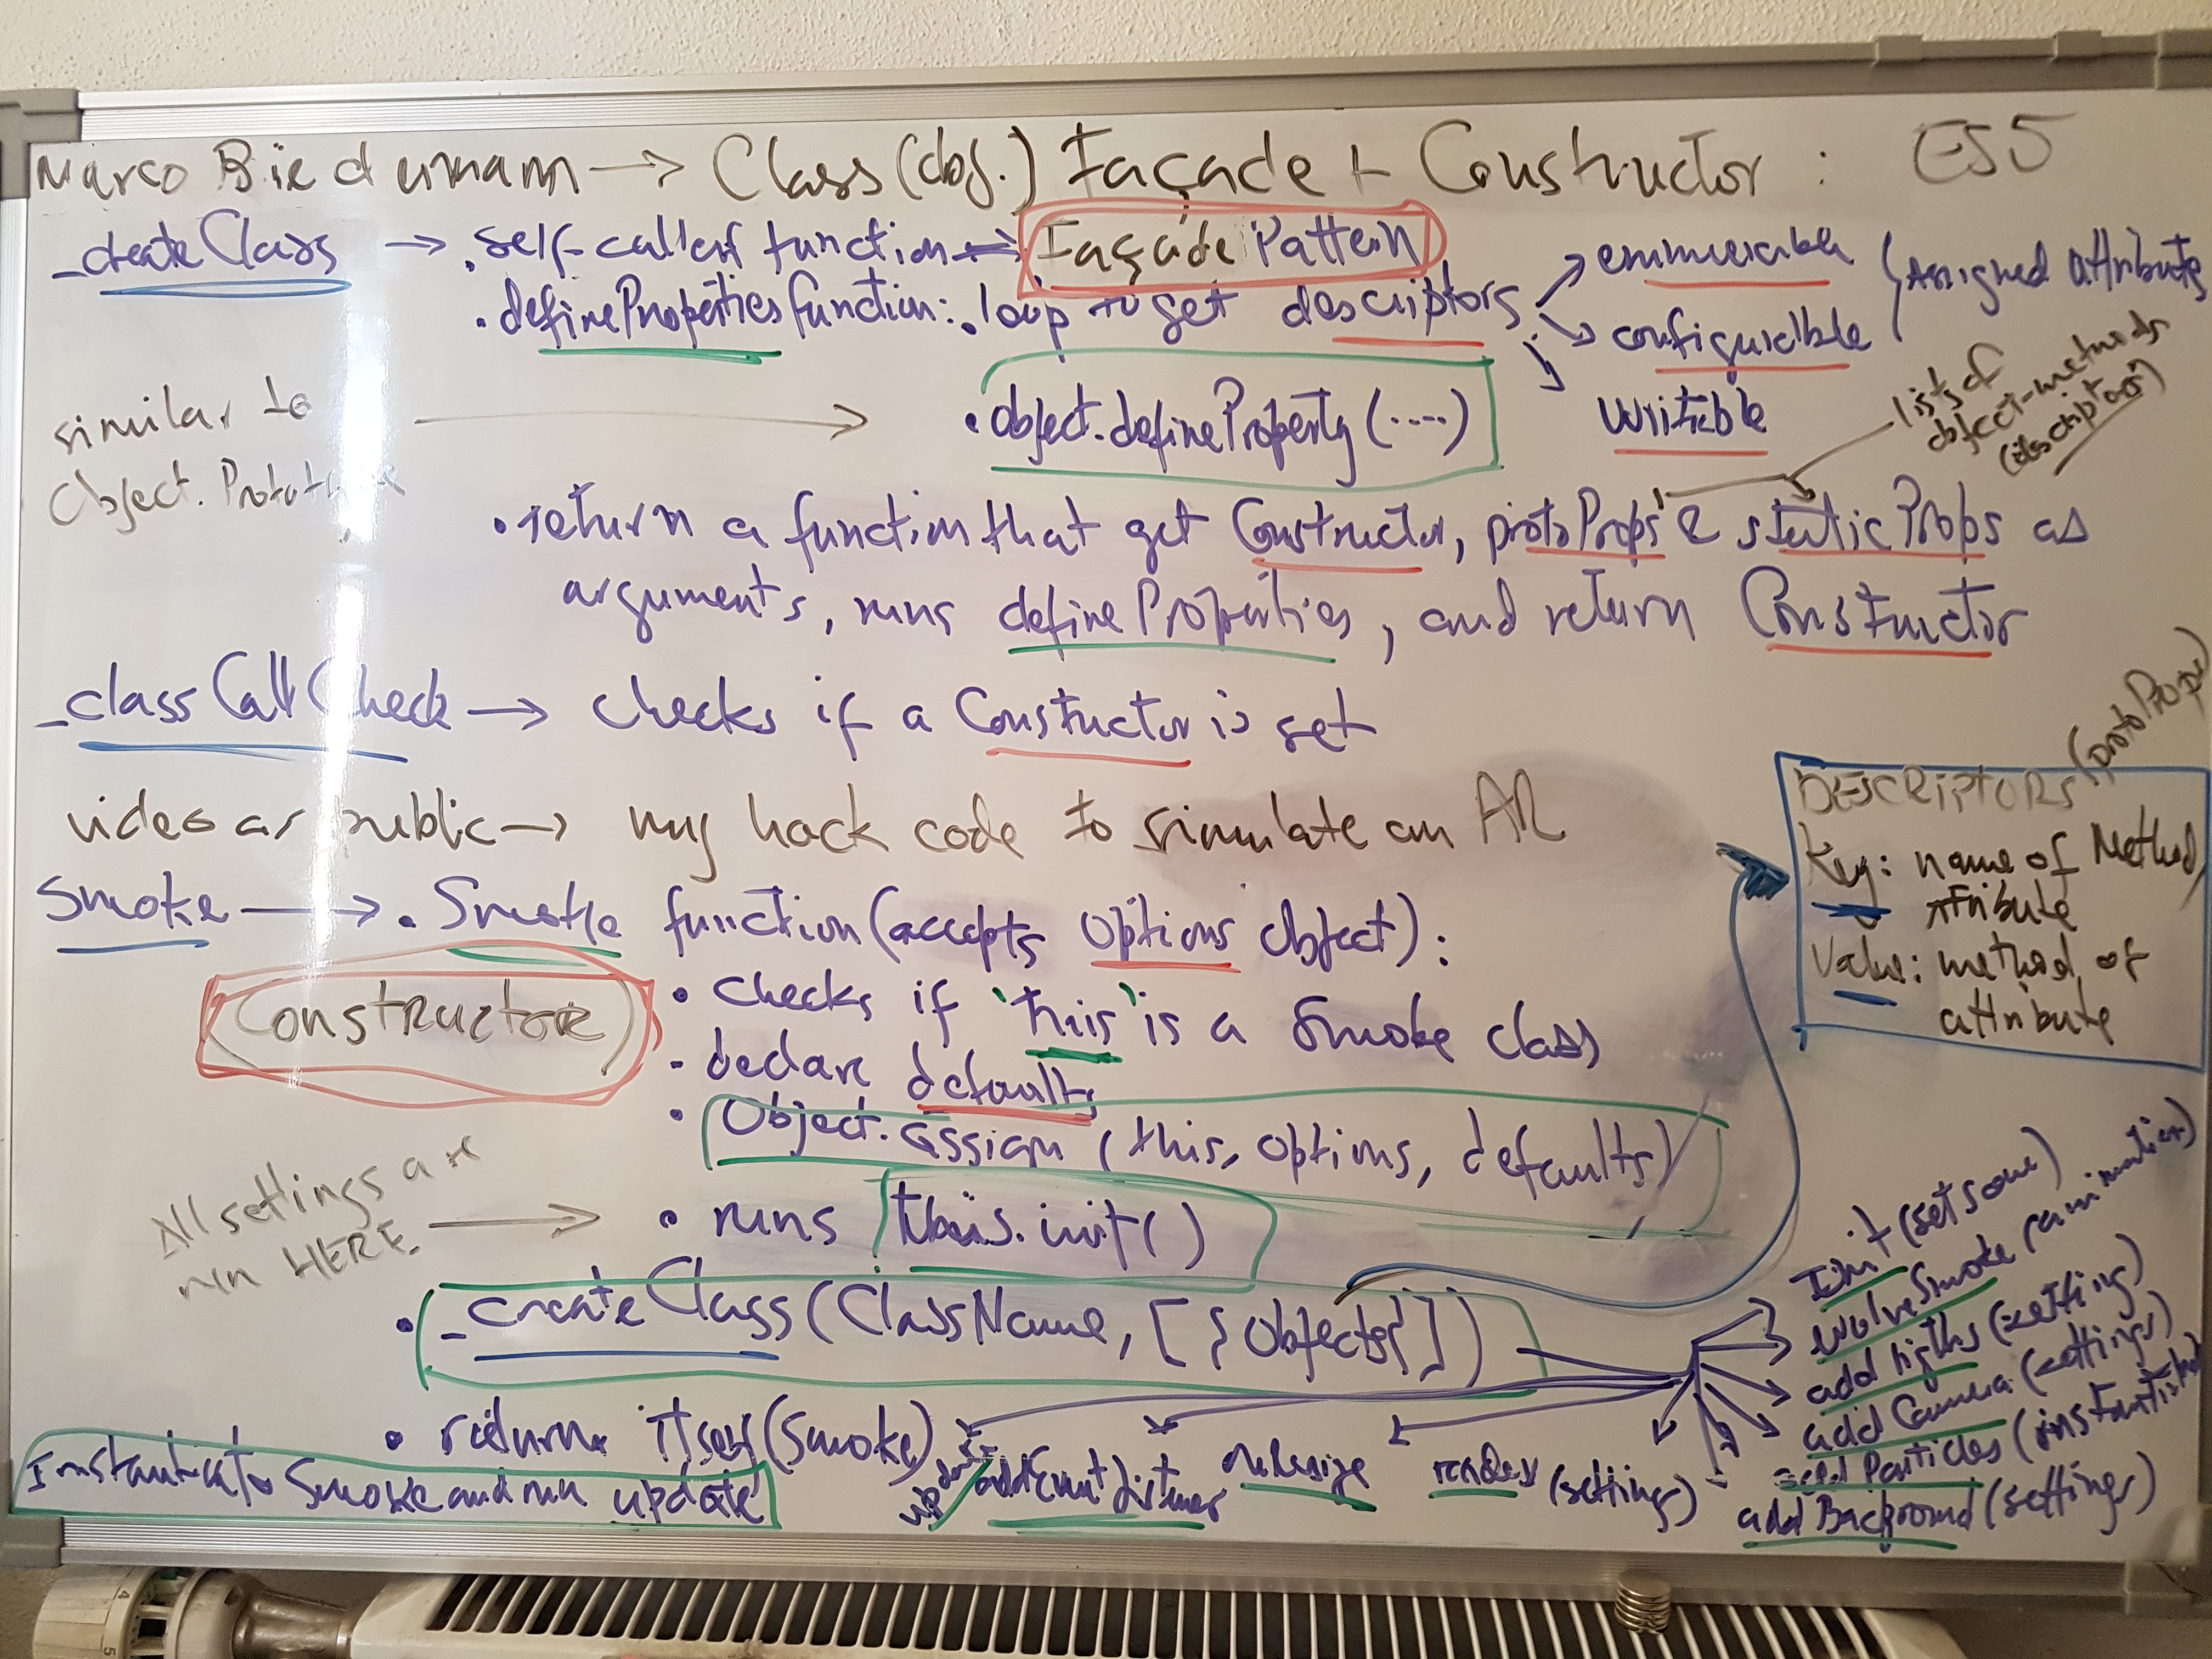 Marco Biedermann → Class (obj.) Façade + Constructor : ES5
_createClass → . self-called function ⇒ Façade Pattern
enumerable
(Assigned attribute
. defineProperties function: . loop to get descriptors
configurable
writable
similar to
Object.Prototype
→ . object.defineProperty (....)
lists of
object-methods
(descriptors)
. return a function that get Constructor, protoProps & staticProps as
arguments, runs defineProperties, and return Constructor
_classCallCheck → checks if a Constructor is set
video as public → my hack code to simulate an AR
DESCRIPTORS (protoProps)
Key: name of Method/
Attribute
Value: method or
attribute
Smoke → . Smoke function (accepts options object) :
(Constructor)
. checks if 'this' is a Smoke class
. declare defaults
. Object.assign (this, options, defaults)
All settings are
run HERE
→ . runs this.init()
. _createClass (ClassName, [ {Objects} ])
Init (set some)
evolveSmoke (animation)
add ligths (setting)
add Camera (settings)
add Particles
add Background (settings)
render (settings)
onResize
addEventListener
update
. return itself (Smoke)
Instantiate Smoke and run update